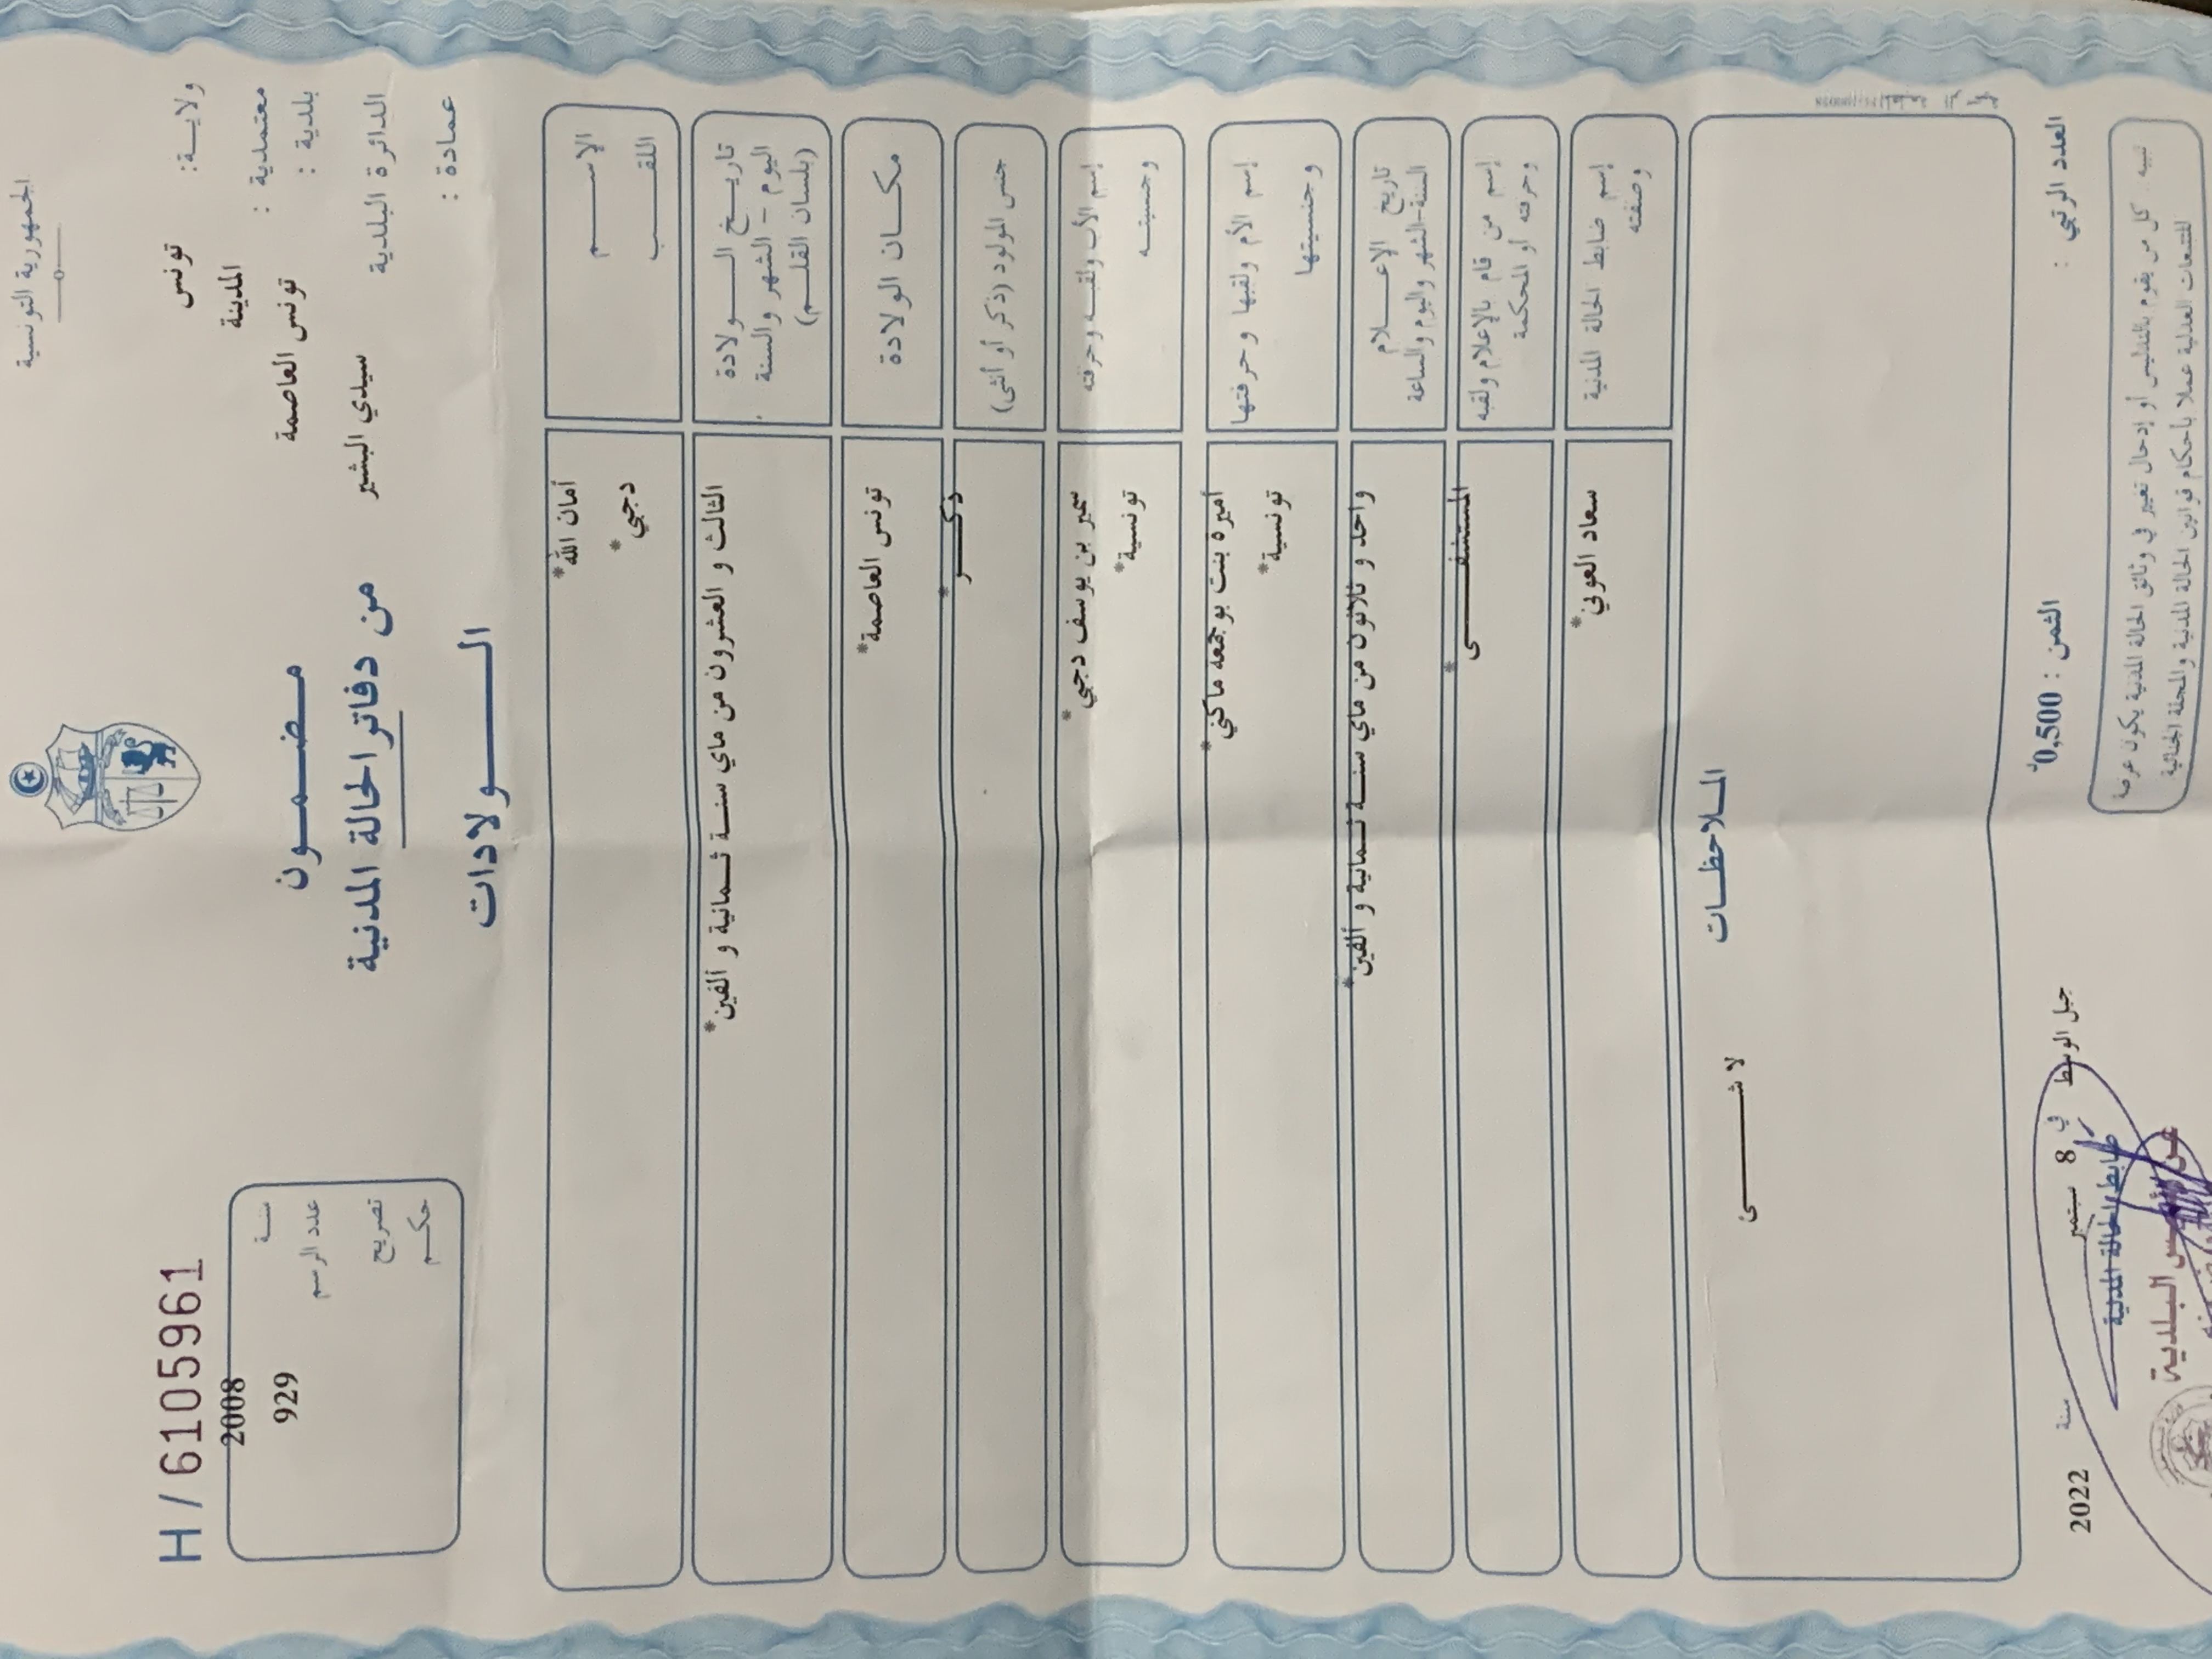 الجمهورية التونسية
H / 6105961
ولايـــة: تونس
معتمدية : المدينة
بلدية : تونس العاصمة
الدائرة البلدية سيدي البشير
عمادة :
مضمون
من دفاتر الحالة المدنية
الولادات
سنة 2008
عدد الرسم 929
تصريح
حكم
الإسم أمان الله*
اللقب دجبي*
تاريخ الولادة الثالث و العشرون من ماي سنة ثمانية و ألفين*
اليوم - الشهر والسنة
(بلسان القلم)
مكان الولادة تونس العاصمة*
جنس المولود (ذكر أو أنثى) ذكر*
إسم الأب ولقبه وحرفته سمير بن يوسف دجبي*
وجنسيته تونسية*
إسم الأم ولقبها وحرفتها أميرة بنت بوجمعه ماكني*
وجنسيتها تونسية*
تاريخ الإعلام واحد و ثلاثون من ماي سنة ثمانية و ألفين*
السنة-الشهر واليوم والساعة
إسم من قام بالإعلام ولقبه المستشفى*
وحرفته أو المحكمة
إسم ضابط الحالة المدنية سعاد العوني*
وصفته
الملاحظات
لا شئ
العدد الرتبي :
الثمن : 0,500د
جبل الوسط في 8 سبتمبر سنة 2022
ضابط الحالة المدنية
عن رئيس البلدية
تنبيه : كل من يقوم بالتدليس أو إدخال تغيير في وثائق الحالة المدنية يكون عرضة
للتتبعات العدلية عملا بأحكام قوانين الحالة المدنية والمجلة الجنائية